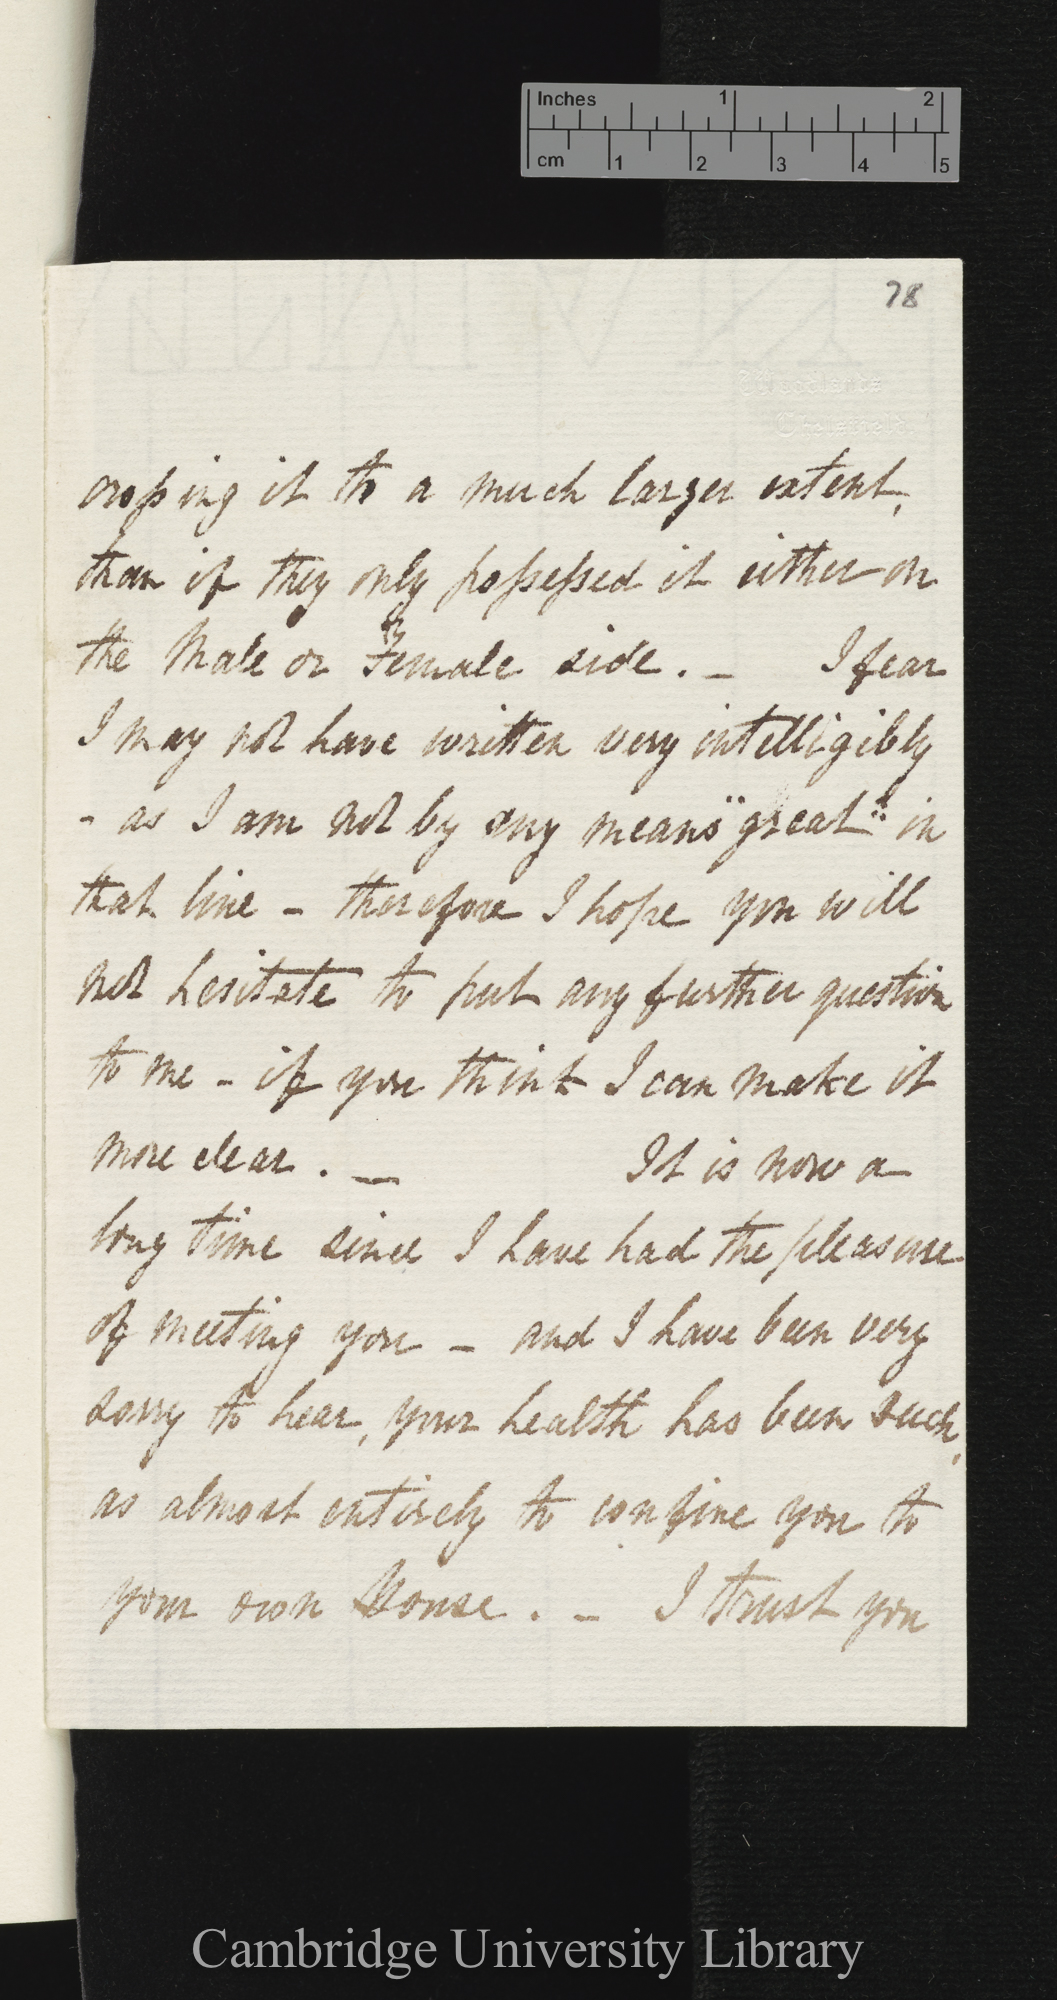 Inches 1 2
cm 1 2 3 4 5
78
Woodlands
Chelsfield
crossing it to a much larger extent,
than if they only possessed it either on
the Male or Female side. _ I fear
I may not have written very intelligibly
- as I am not by any means "great" in
that line - therefore I hope you will
not hesitate to put any further question
to me - if you think I can make it
more clear. _ It is now a
long time since I have had the pleasure
of meeting you - and I have been very
sorry to hear, your health has been such,
as almost entirely to confine you to
your own House. - I trust you
Cambridge University Library